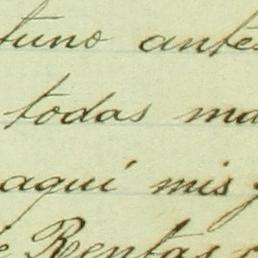 tuno antes
todas ma
aqui mis
de Rentas